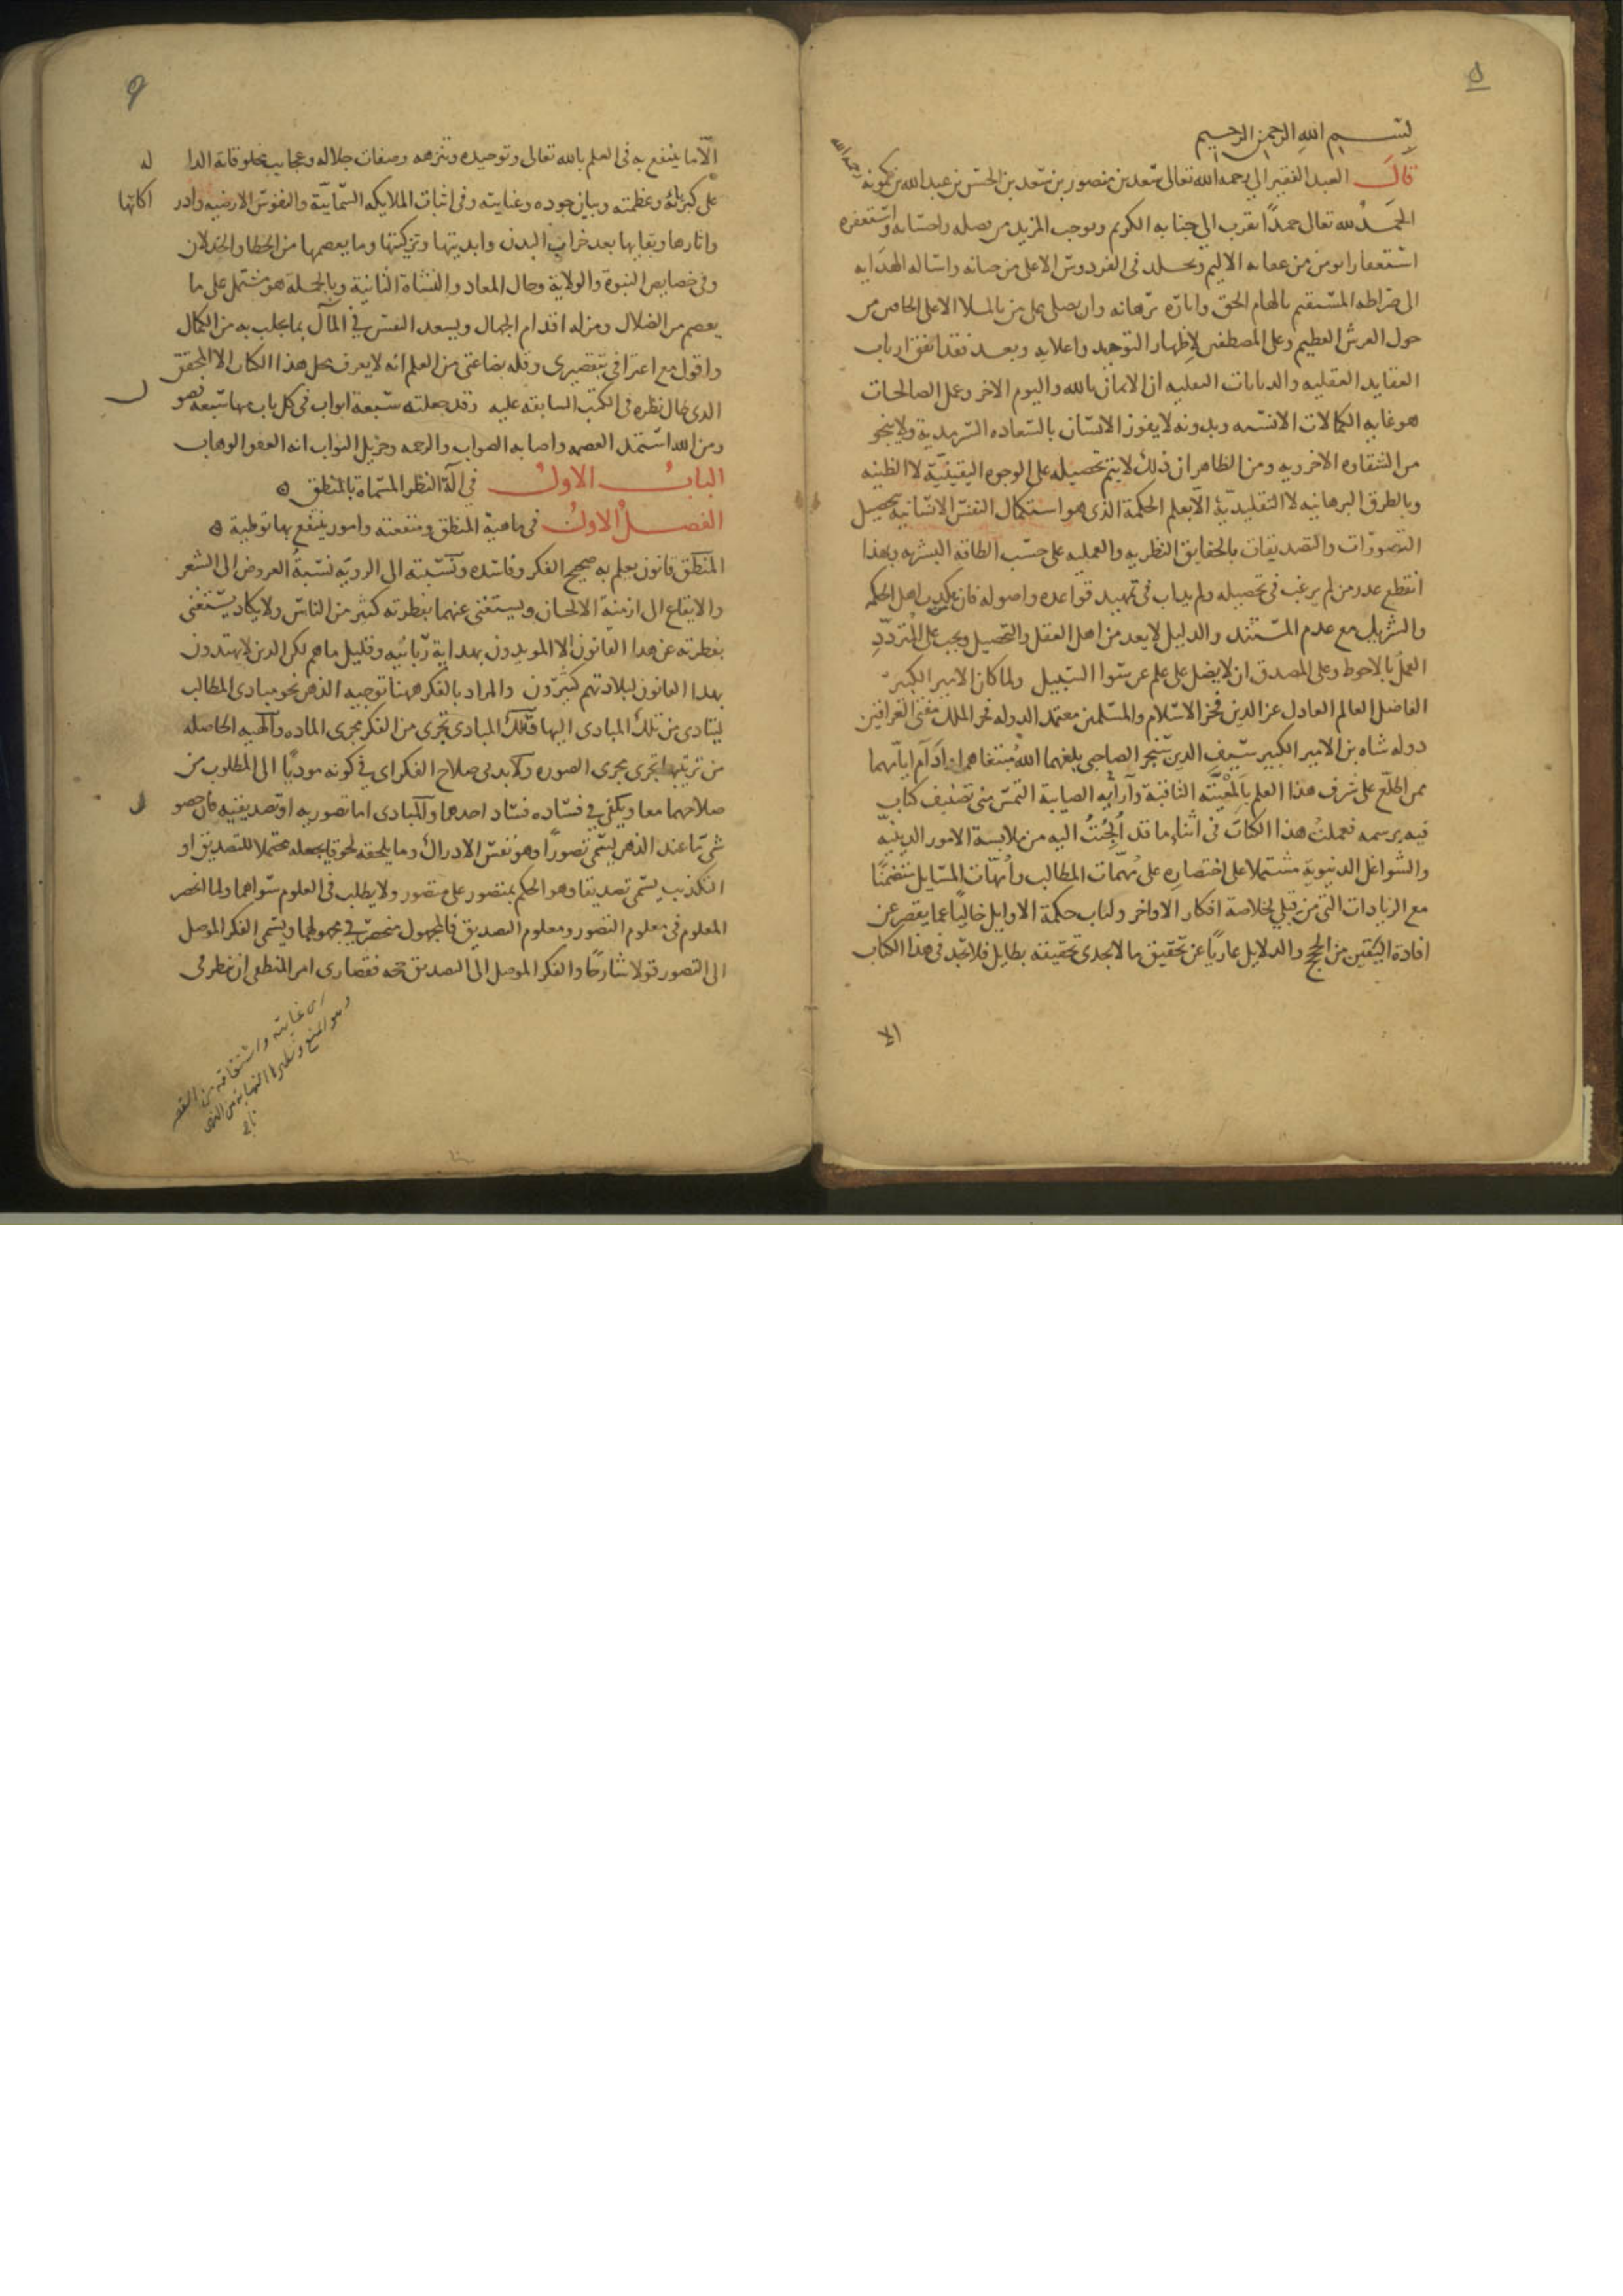 ٥
بسم الله الرحمن الرحيم
قال العبد الفقير الى رحمة الله تعالى سعد بن منصور بن سعد بن الحسن بن عبد الله بن كمونة رحمه الله
الحمد لله تعالى حمدًا يقرب الى جنابه الكريم ويوجب المزيد من فضله واحسانه واستغفره
استغفارا يومن من عقابه الاليم ويخلد فى الفردوس الاعلى من جنانه واساله الهدايه
الى صراطه المستقيم بالهام الحق وانارة برهانه وان يصلى على من بالملا الاعلى الحافين من
حول العرش العظيم وعلى المصطفين لاظهار التوحيد واعلانه وبعد فقد اتفق ارباب
العقايد العقليه والديانات النقليه ان الايمان بالله واليوم الاخر وعمل الصالحات
هو غايه الكمالات الانسيه وبدونه لا يفوز الانسان بالسعاده السرمدية ولا ينجو
من الشقاوه الاخرويه ومن الظاهر ان ذلك لا يتم تحصيله على الوجوه اليقينيّة لا الظنيه
وبالطرق البرهانيه لا التقليديّة الّا بعلم الحكمة الذى هو استكمال النفس الانسانية بتحصيل
التصورات والتصديقات بالحقايق النظريه والعمليه على حسب الطاقه البشريه وبهذا
انقطع عذر من لم يرغب فى تحصيله ولم يداب فى تمهيد قواعده واصوله فان تكذيب اهل الحكمه
والتنزيل مع عدم المستند والدليل لا يعد من اهل العقل والتحصيل ويجب على المتردد
العمل بالاحوط وعلى المصدق ان لا يضل على علم عن سوا السبيل ولما كان الامير الكبير
الفاضل العالم العادل عز الدين فخر الاسلام والمسلمين معتمد الدوله فخر الملك مغنى العراقين
دوله شاه بن الامير الكبير سيف الدين سنجر الصاحبى بلغهما الله مبتغاهما وادام ايامهما
ممن اطلع على شرف هذا العلم بالمعيته الثاقبة وآرائه الصايبة التمس منى تصنيف كتاب
فيه برسمه فعملت هذا الكتاب فى اثناء ما قد الجئت اليه من ملابسة الامور الدينيّة
والشواغل الدنيوية مشتملا على اختصاره على مهمات المطالب وامهات المسايل متضمنًا
مع الزيادات التى من قبلى لخلاصة افكار الاواخر ولباب حكمة الاوايل خاليًا عما يقصر عن
افادة اليقين من الحجج والدلايل عاريًا عن تحقيق ما لا يجدى تحقيقه بطايل فلا تجد فى هذا الكتاب
الا
الّا ما ينتفع به فى العلم بالله تعالى وتوحيده وتنزهه وصفات جلاله وعجايب مخلوقاته الداله
على كبريائه وعظمته وبيان جوده وعنايته وفى اثبات الملايكه السمائيّة والنفوس الارضيه وادراكاتها
واثارها وبقايها بعد خراب البدن وابديتها وتزكيتها وما يعصمها من الخطا والخذلان
وفى خصايص النبوة والولاية وحال المعاد والنشاة الثانية وبالجملة هو مشتمل على ما
يعصم من الضلال ومزله اقدام الجهال ويسعد النفس فى المآل بما يجلب به من الكمال
واقول مع اعترافى بتقصيرى وقله بضاعتى من العلم انه لا يعرف محل هذا الكتاب الا المحقق
الذى طال نظره فى الكتب السابقه عليه وقد جعلته سبعة ابواب فى كل باب منها سبعة فصول
ومن الله استمد العصمه واصابه الصواب والرحمه وجزيل الثواب انه العفو الوهاب
الباب الاول فى آلة النظر المسماة بالمنطق
الفصل الاول فى ماهية المنطق ومنفعته وامور ينتفع بها توطية
المنطق قانون يعلم به صحيح الفكر وفاسده ونسبته الى الرويّه نسبة العروض الى الشعر
والايقاع الى ازمنة الالحان ويستغنى عنهما بفطرته كثير من الناس ولا يكاد يستغنى
بفطرته عن هذا القانون الا المويدون بهداية ربانيه وقليل ما هم لكن الذين لا يهتدون
بهذا القانون لبلادتهم كثيرون والمراد بالفكر ههنا توجيه الذهن نحو مبادى المطالب
ليتادى من تلك المبادى اليها فتلك المبادى تجرى من الفكر مجرى الماده والهيه الحاصله
من ترتيبها تجرى مجرى الصوره ولابد فى صلاح الفكر اى فى كونه موديًا الى المطلوب من
صلاحهما معا ويكفى فى فساده فساد احدهما والمبادى اما تصوريه او تصديقيه فان حصول
شى ما عند الذهن يسمى تصورًا وهو نفس الادراك وما يلحقه لحوقا يجعله محتملا للتصديق او
التكذيب يسمى تصديقا وهو الحكم بمتصور على متصور ولا يطلب فى العلوم سواهما ولما انحصر
المعلوم فى معلوم التصور ومعلوم التصديق فالمجهول منحصر فى مجهولهما ويسمى الفكر الموصل
الى التصور قولا شارحًا والفكر الموصل الى التصديق حجه فقصارى امر المنطقى ان ينظر فى
اى غايته واشتقاقه من القصر
وهو المنع ونظيرها النهاية من النهى